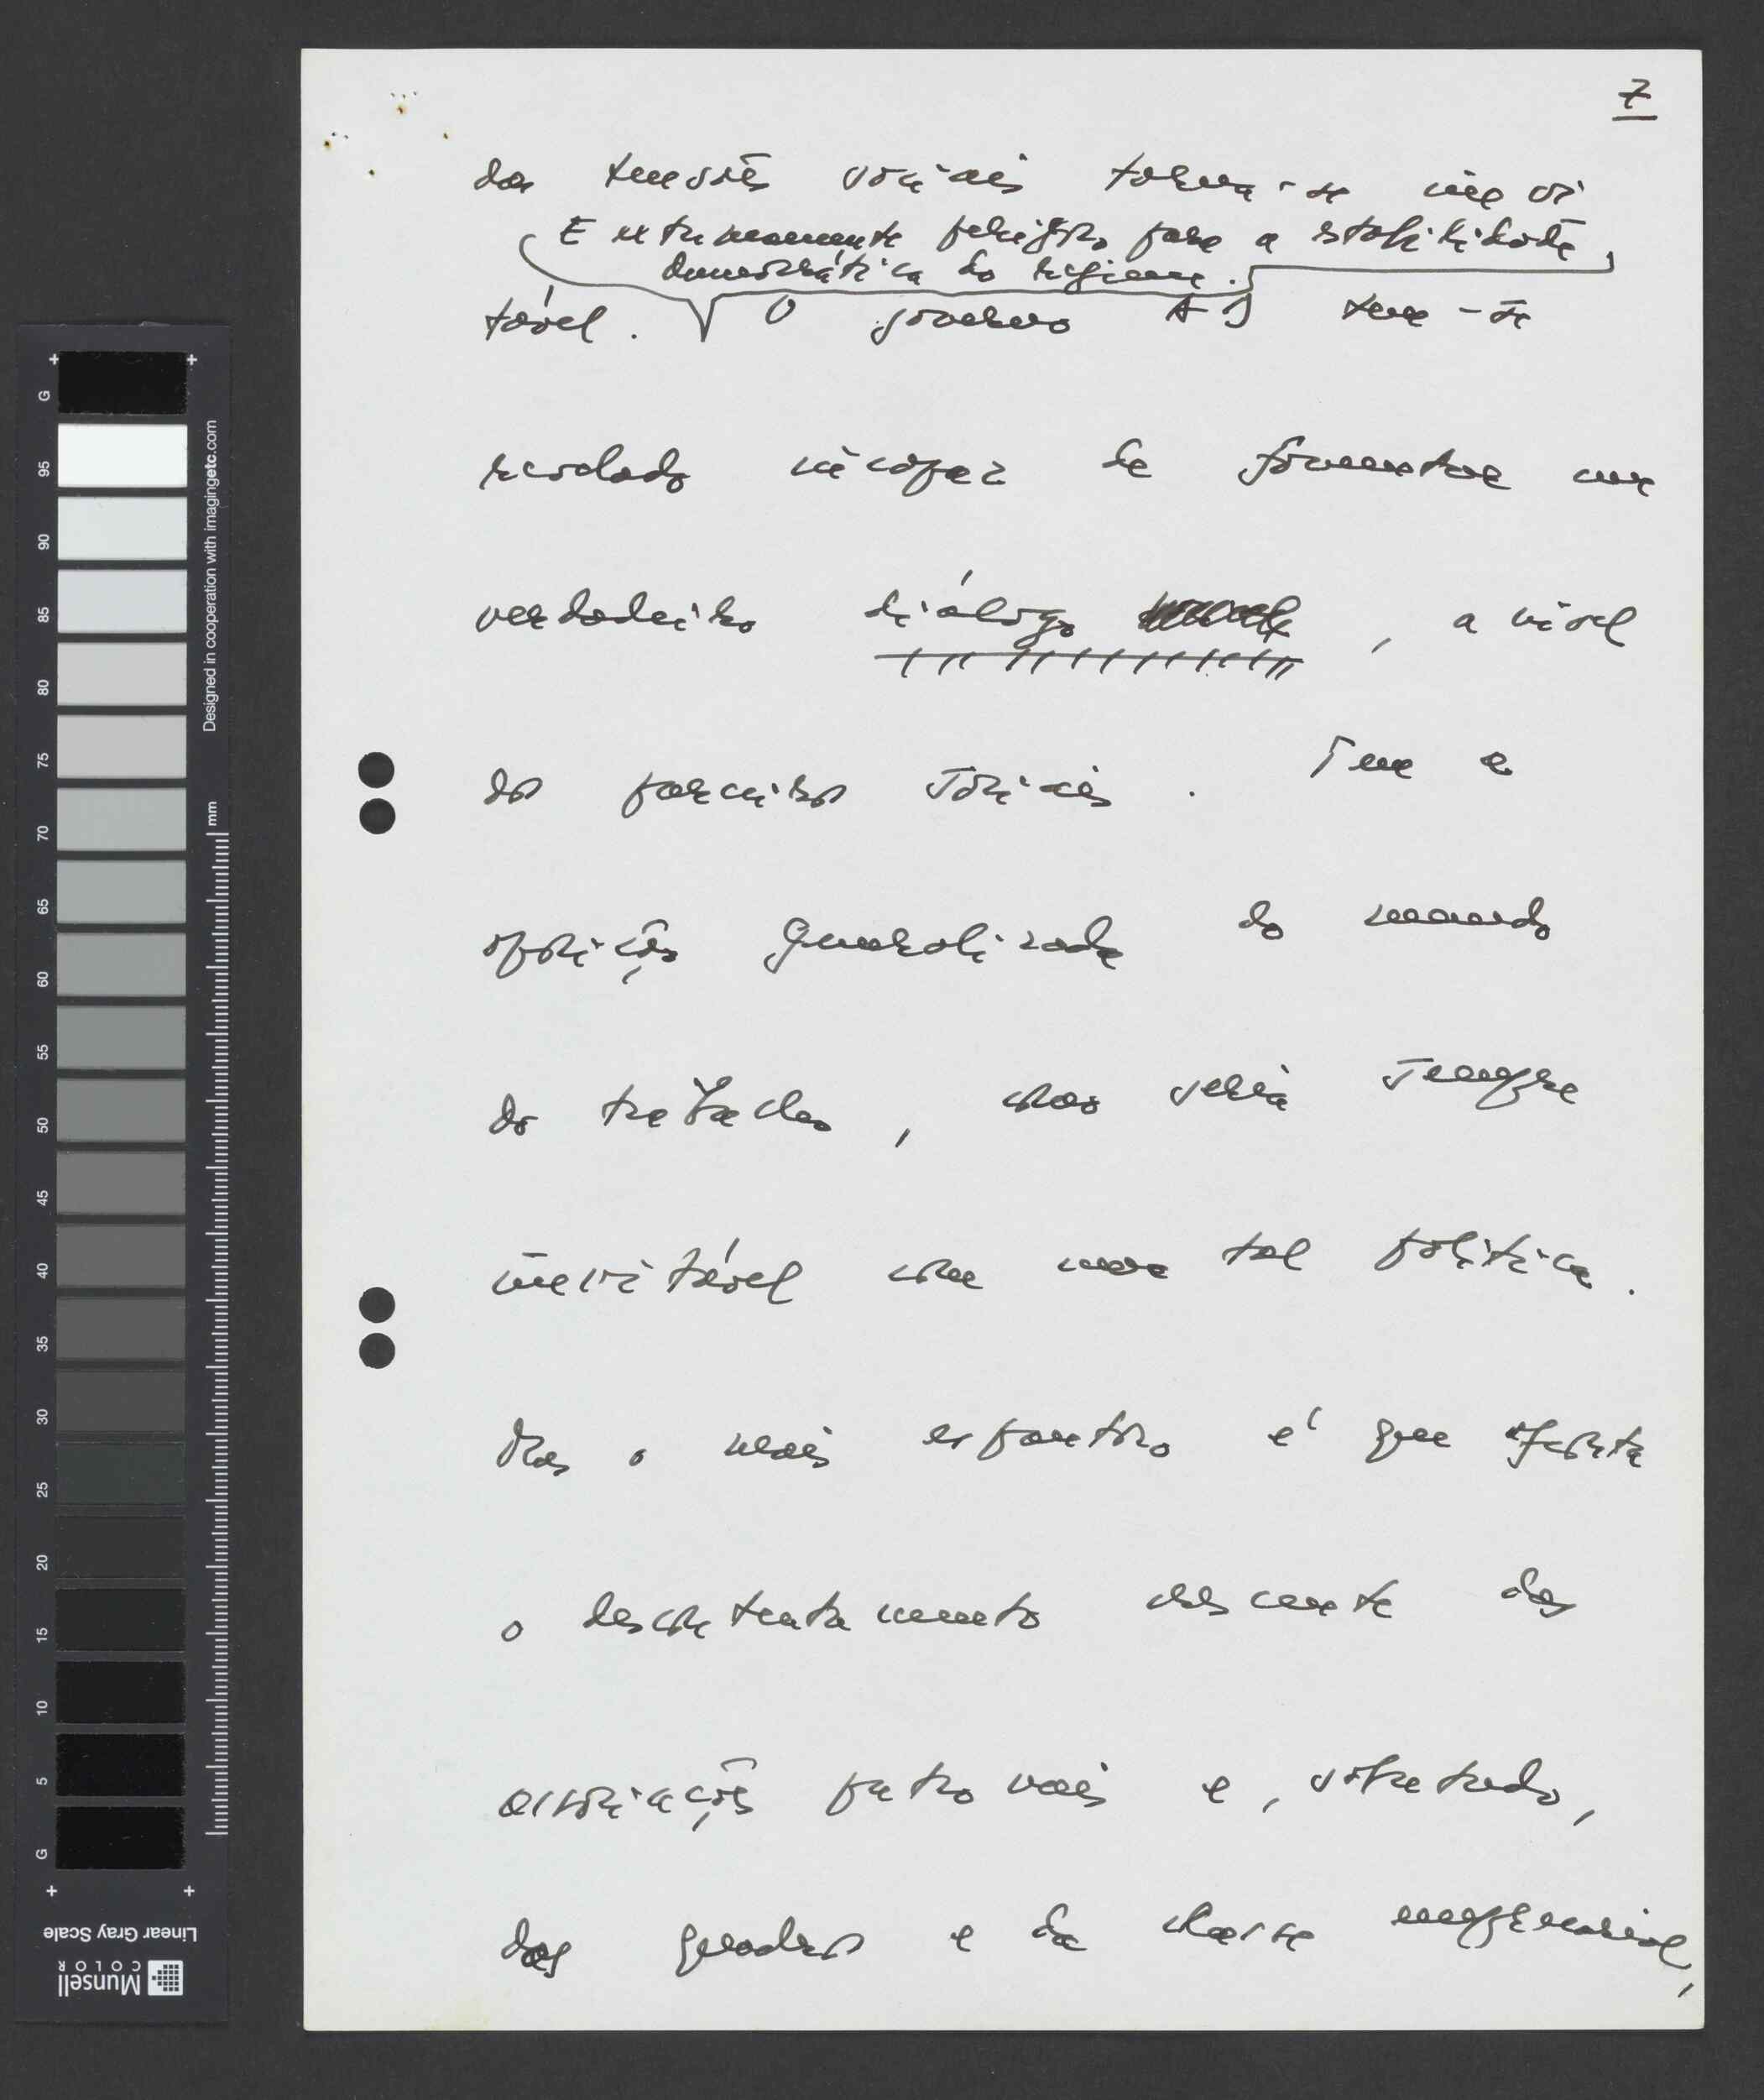 7
das tensões sociais torna-se inevi
E extremamente perigoso para a estabilidade
democrática do regime.
tável. O governo AD tem-se
revelado incapaz de fomentar um
verdadeiro diálogo , a nível
dos parceiros sociais. Tem a
oposição generalizada do mundo
do trabalho, como seria sempre
inevitável com uma tal política.
Mas o mais espantoso é que
o descontentamento crescente das
associações patronais e, sobretudo,
dos quadros e da classe empresarial,
G
95
90
85
80
75
70
65
60
55
50
45
40
35
30
25
20
15
10
5
G
Designed in cooperation with imagingetc.com
mm
Linear Gray Scale
Munsell
COLOR